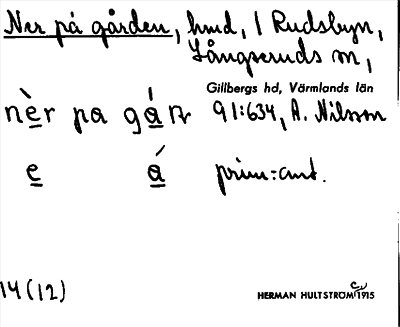 Ner på gården, hmd, i Rudsbyn,
Långseruds sn,
Gillbergs hd, Värmlands län
nèr pa gán 91:634, A. Nilsson
e á prim:ant.
14 (12) HERMAN HULTSTRÖM 1915